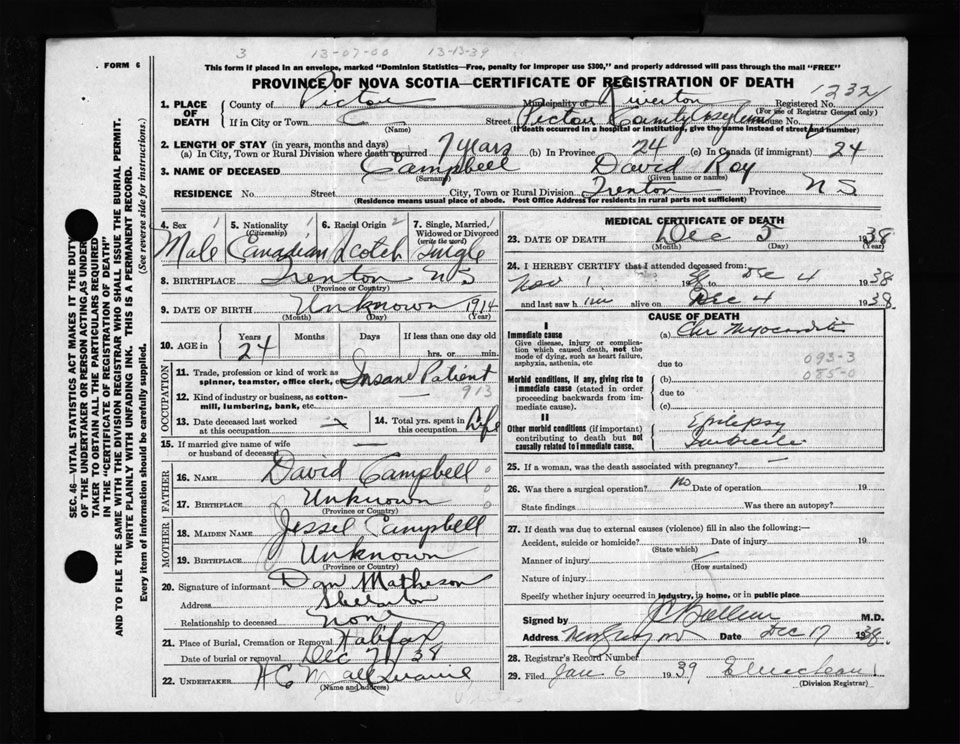 3 13-07-00 13-13-39
FORM 6
This form if placed in an envelope, marked "Dominion Statistics—Free, penalty for improper use $300," and properly addressed will pass through the mail "FREE"
PROVINCE OF NOVA SCOTIA—CERTIFICATE OF REGISTRATION OF DEATH
1232
1. PLACE OF DEATH County of Pictou Municipality of Riverton Registered No.
(For use of Registrar General only)
If in City or Town Street Pictou County Asylum House No.
(Name) (If death occurred in a hospital or institution, give the name instead of street and number)
2. LENGTH OF STAY (in years, months and days)
(a) In City, Town or Rural Division where death occurred 7 years (b) In Province 24 (c) In Canada (if immigrant) 24
3. NAME OF DECEASED Campbell David Roy
(Surname) (Given name or names)
RESIDENCE No. Street City, Town or Rural Division Trenton Province N S
(Residence means usual place of abode. Post Office Address for residents in rural parts not sufficient)
SEC. 46—VITAL STATISTICS ACT MAKES IT THE DUTY
OF THE UNDERTAKER OR PERSON ACTING AS UNDER
TAKER TO OBTAIN ALL THE PARTICULARS REQUIRED
IN THE "CERTIFICATE OF REGISTRATION OF DEATH"
AND TO FILE THE SAME WITH THE DIVISION REGISTRAR WHO SHALL ISSUE THE BURIAL PERMIT.
WRITE PLAINLY WITH UNFADING INK. THIS IS A PERMANENT RECORD.
Every item of information should be carefully supplied. (See reverse side for instructions.)
4. Sex 5. Nationality (Citizenship) 6. Racial Origin 7. Single, Married, Widowed or Divorced (write the word)
Male Canadian Scotch Single
8. BIRTHPLACE Trenton N S
(Province or Country)
9. DATE OF BIRTH Unknown 1914
(Month) (Day) (Year)
10. AGE in Years Months Days If less than one day
24 hrs. or min.
OCCUPATION
11. Trade, profession or kind of work as spinner, teamster, office clerk, etc. Insane Patient
12. Kind of industry or business, as cotton-mill, lumbering, bank, etc. — 913
13. Date deceased last worked at this occupation 14. Total yrs. spent in this occupation Life
15. If married give name of wife or husband of deceased —
FATHER
16. NAME David Campbell
17. BIRTHPLACE Unknown
(Province or Country)
MOTHER
18. MAIDEN NAME Jessel Campbell
19. BIRTHPLACE Unknown
(Province or Country)
20. Signature of informant Dan Matheson
Address
Relationship to deceased None
21. Place of Burial, Cremation or Removal Halifax
Date of burial or removal Dec 7 1938
22. UNDERTAKER H C
(Name and address)
MEDICAL CERTIFICATE OF DEATH
23. DATE OF DEATH Dec 5 1938
(Month) (Day) (Year)
24. I HEREBY CERTIFY that I attended deceased from:
Nov 1 1938 to Dec 4 1938
and last saw him alive on Dec 4 1938.
CAUSE OF DEATH
I
Immediate cause (a) Chr Myocarditis
Give disease, injury or complication which caused death, not the mode of dying, such as heart failure, asphyxia, asthenia, etc
due to 093-3
085-0
Morbid conditions, if any, giving rise to immediate cause (stated in order proceeding backwards from immediate cause).
(b)
due to
(c)
II
Other morbid conditions (if important) contributing to death but not causally related to immediate cause.
Epilepsy
Imbecile
25. If a woman, was the death associated with pregnancy? —
26. Was there a surgical operation? no Date of operation 19
State findings Was there an autopsy?
27. If death was due to external causes (violence) fill in also the following:—
Accident, suicide or homicide? Date of injury 19
(State which)
Manner of injury
(How sustained)
Nature of injury
Specify whether injury occurred in industry, in home, or in public place
Signed by M.D.
Address Date Dec 17 1938.
28. Registrar's Record Number
29. Filed Jan 6 1939
(Division Registrar)